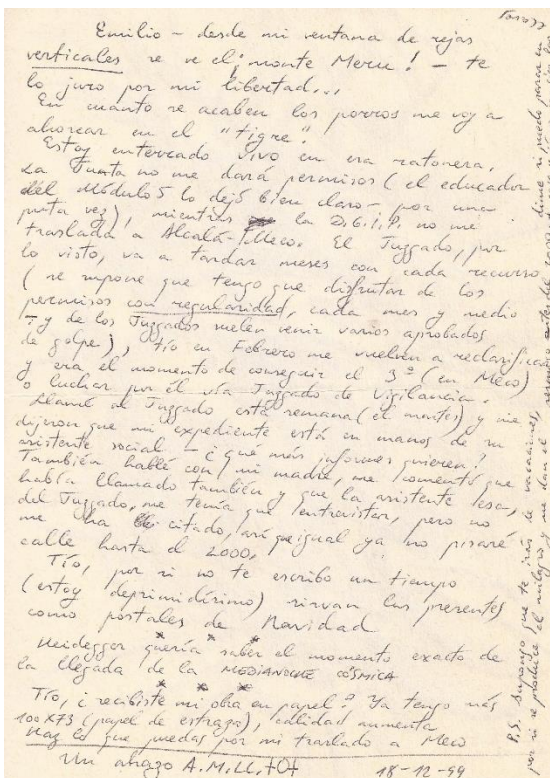 Emilio - desde mi ventana de rejas
verticales se ve el ¡monte Meru! - te
lo juro por mi libertad...
En cuanto se acaben los porros me voy a
ahorcar en el "tigre".
Estoy enterrado vivo en esa ratonera,
La Junta no me dará permisos (el educador
del Módulo 5 lo dejó bien claro - por una
puta vez), mientras la D.G.I.P. no me
traslada a Alcalá-Meco. El Juzgado, por
lo visto, va a tardar meses con cada recurso
(se supone que tengo que disfrutar de los
permisos con regularidad, cada mes y medio
- y de los Juzgados suelen venir varios aprobados
de golpe), Tío en Febrero me vuelven a reclasificar
y era el momento de conseguir el 3º (en Meco)
o luchar por él vía Juzgado de Vigilancia.
Llamé al Juzgado esta semana (el martes) y me
dijeron que mi expediente está en manos de su
asistente social - ¿qué más informes quieren?
También hablé con mi madre, me comentó que
había llamado también y que la asistente esa,
del Juzgado, me tenía que entrevistar, pero no
me ha citado, así que igual ya no pisaré
calle hasta el 2000.
Tío, por si no te escribo un tiempo
(estoy deprimidísimo) sirvan las presentes
como postales de Navidad
* * *
Heidegger quería saber el momento exacto de
la llegada de la MEDIANOCHE CÓSMICA
* * *
Tío, ¿recibiste mi obra en papel? Ya tengo más
100x73 (papel de estraza), calidad aumenta
Haz lo que puedas por mi traslado a Meco
Un abrazo A.M.LL.
18-12-99
P.S. Supongo que te irás de vacaciones, dime si puedo parar en
por si se produce el milagro y me dan el permiso antes de